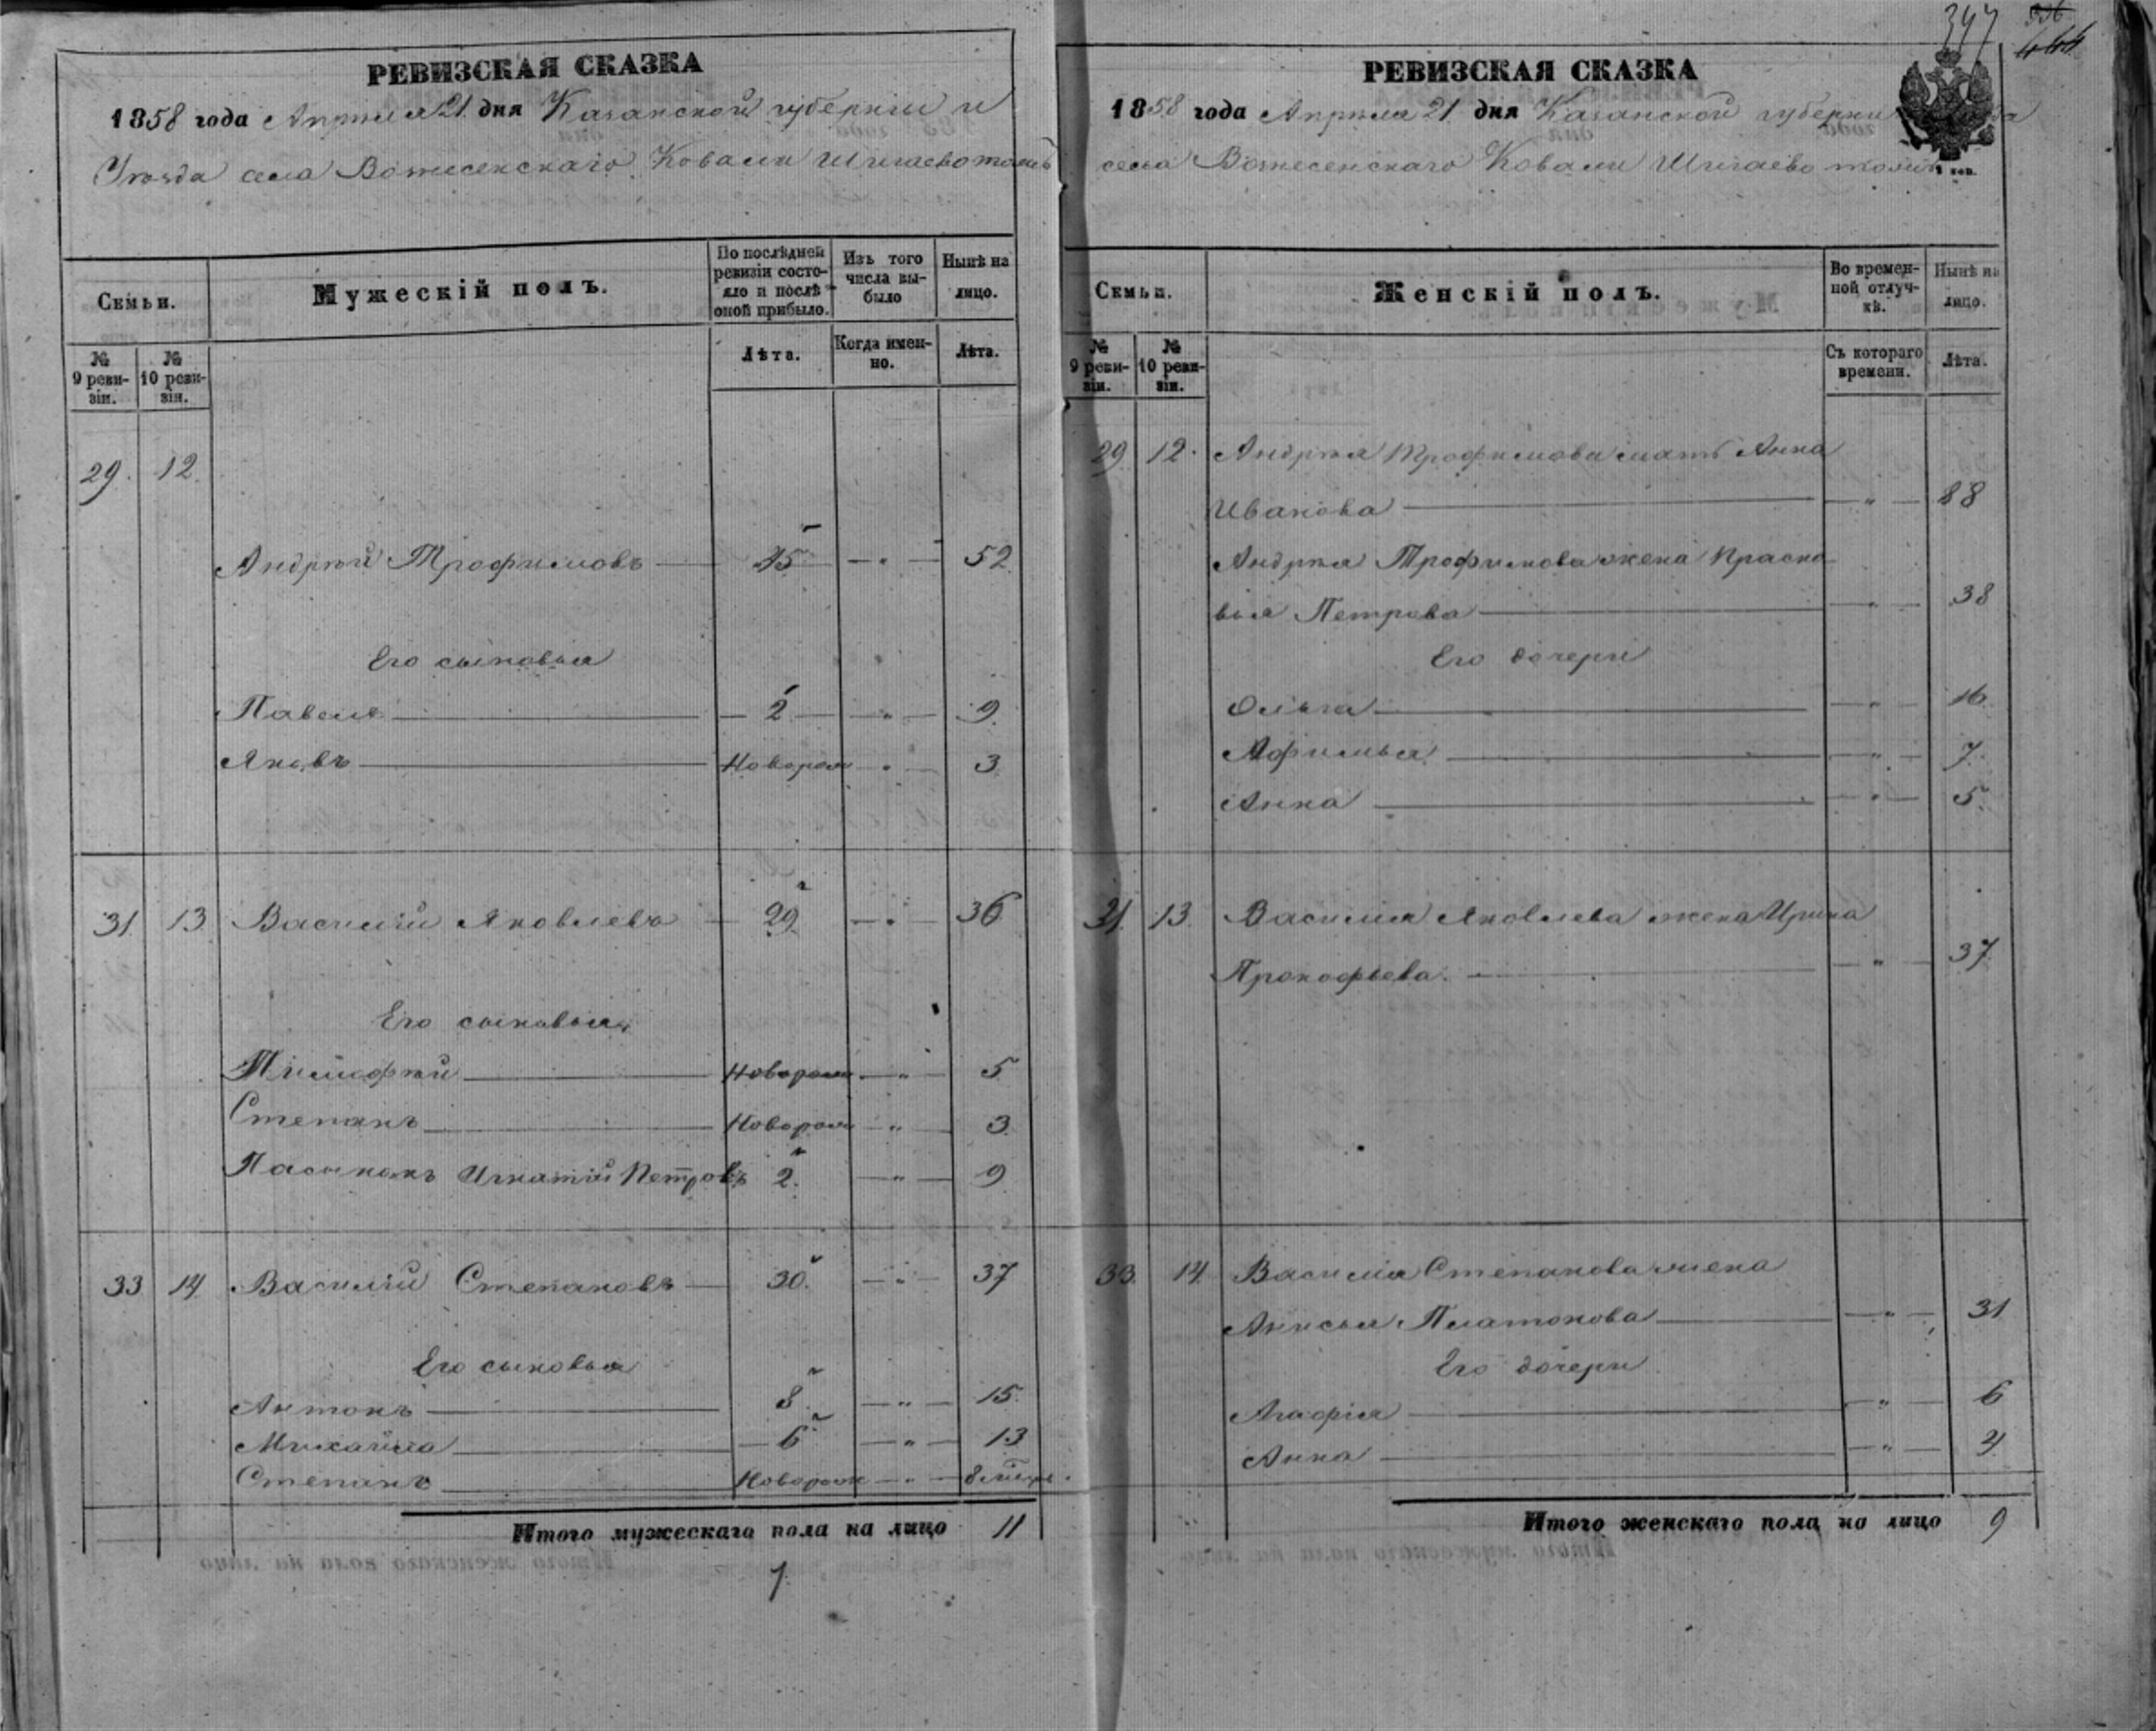 РЕВИЗСКАЯ СКАЗКА
1858 года Апрѣля 21 дня Казанской губерніи и
Уѣзда села Вознесенскаго Ковали Шигаево тожъ
Семьи.
Мужескій полъ.
По послѣдней ревизіи состояло и послѣ оной прибыло.
Изъ того числа выбыло
Нынѣ на лицо.
№ 9 ревизіи.
№ 10 ревизіи.
Лѣта.
Когда именно.
Лѣта.
29. 12.
Андрѣй Трофимовъ 45 — " — 52
Его сыновья
Павелъ 2 — " — 9.
Яковъ Новорож — " — 3
31 13 Василій Яковлевъ 29 — " — 36
Его сыновья
Тимофѣй Новорож — " — 5
Степанъ Новорож — " — 3
Пасынокъ Игнатій Петровъ 2. — " — 9
33 14 Василій Степановъ 30. — " — 37
Его сыновья
Антонъ 8 — " — 15.
Михайла 6 — " — 13
Степанъ Новорож — " —
Итого мужескаго пола на лицо 11
7.
347
РЕВИЗСКАЯ СКАЗКА
1858 года Апрѣля 21 дня Казанской губерніи
села Вознесенскаго Ковали Шигаево тожъ
коп.
Семьи.
Женскій полъ.
Во временной отлучкѣ.
Нынѣ на лицо.
№ 9 ревизіи.
№ 10 ревизіи.
Съ котораго времени.
Лѣта.
29 12. Андрѣя Трофимова мать Анна
Иванова — " — 88
Андрѣя Трофимова жена Праско
вья Петрова — " — 38
Его дочери
Ольга — " — 16
Афимья — " — 7.
Анна — " — 5.
31. 13. Василія Яковлева жена Ирина
Прокофьева. — " — 37
33. 14 Василія Степанова жена
Аксинья Платонова — " — 31
Его дочери
Агафія — " — 6
Анна — " — 4
Итого женскаго пола на лицо 9